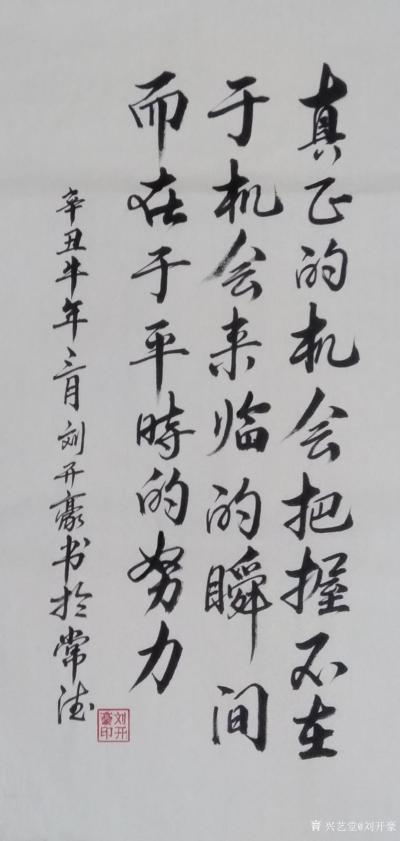 真正的机会把握不在
于机会来临的瞬间
而在于平時的努力
辛丑牛年三月刘开豪书於常德
刘开豪印
兴艺堂@刘开豪